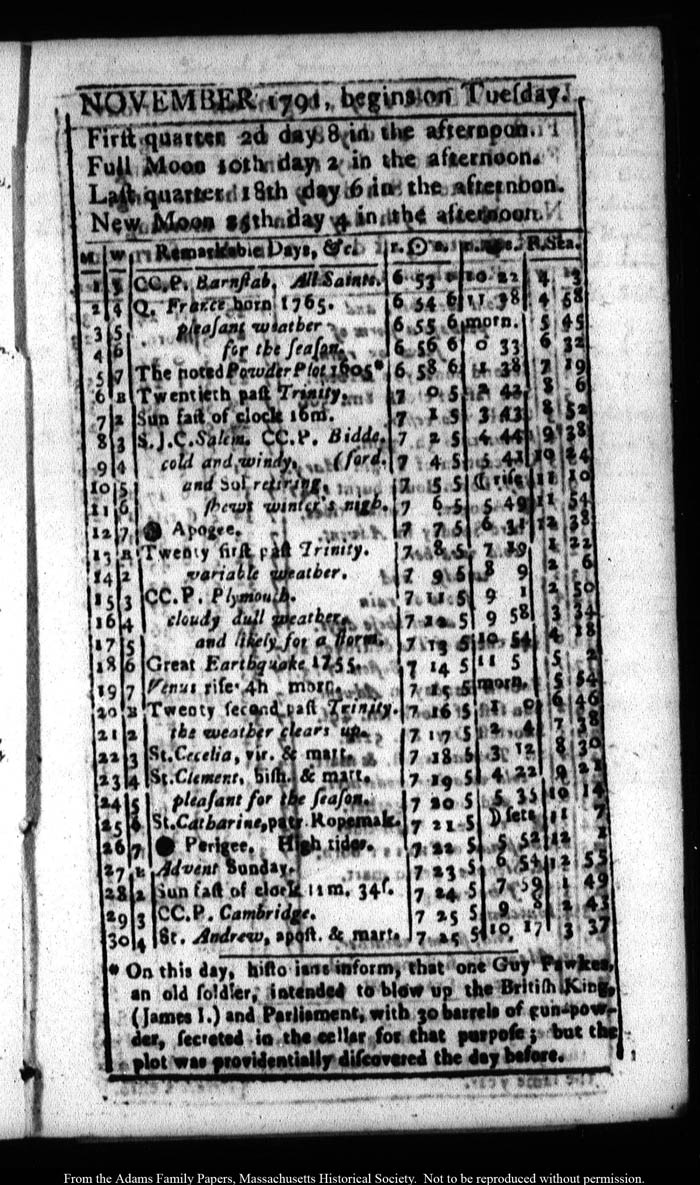 NOVEMBER 1791, begins on Tueſday.
Firſt quarter 2d day 8 in the afternoon.
Full Moon 10th day 2 in the afternoon.
Laſt quarter 18th day 6 in the afternoon.
New Moon 25th day 4 in the afternoon.
M. W. Remarkable Days, &c. r. ☉ s. R.Sta.
1 3 CC.P. Barnſtab. All Saints. 6 53 6 10 22 4 3
2 4 Q. France born 1765. 6 54 6 11 38 4 58
3 5 pleaſant weather 6 55 6 morn. 5 45
4 6 for the ſeaſon. 6 56 6 0 33 6 32
5 7 The noted Powder Plot 1605* 6 58 6 1 38 7 19
6 B Twentieth paſt Trinity. 7 0 5 2 43 8 6
7 2 Sun faſt of clock 16m. 7 1 5 3 43 8 52
8 3 S.J.C. Salem. CC.P. Bidde- 7 2 5 4 44 9 38
9 4 cold and windy, (ford. 7 4 5 5 41 10 24
10 5 and Sol retiring, 7 5 5 ☾ riſe 11 10
11 6 ſhews winter's nigh. 7 6 5 5 49 11 54
12 7 ● Apogee. 7 7 5 6 31 12 38
13 B Twenty firſt paſt Trinity. 7 8 5 7 19 1 22
14 2 variable weather. 7 9 5 8 9 2 6
15 3 CC.P. Plymouth. 7 11 5 9 1 2 50
16 4 cloudy dull weather, 7 12 5 9 58 3 34
17 5 and likely for a ſtorm. 7 13 5 10 54 4 18
18 6 Great Earthquake 1755. 7 14 5 11 5 5 2
19 7 Venus riſe 4h morn. 7 15 5 morn. 5 54
20 B Twenty ſecond paſt Trinity. 7 16 5 1 0 6 46
21 2 the weather clears up. 7 17 5 2 4 7 38
22 3 St. Cecelia, vir. & mart. 7 18 5 3 12 8 30
23 4 St. Clement, biſh. & mart. 7 19 5 4 22 9 21
24 5 pleaſant for the ſeaſon. 7 20 5 5 35 10 14
25 6 St. Catharine, patr. Ropemak. 7 21 5 ☽ ſets 11 7
26 7 ● Perigee. High tides. 7 22 5 5 52 12 1
27 B Advent Sunday. 7 23 5 6 54 12 55
28 2 Sun faſt of clock 11m. 34ſ. 7 24 5 7 59 1 49
29 3 CC.P. Cambridge. 7 25 5 9 8 2 43
30 4 St. Andrew, apoſt. & mart. 7 25 5 10 17 3 37
* On this day, hiſtorians inform, that one Guy Fawkes,
an old ſoldier, intended to blow up the Britiſh King,
(James I.) and Parliament, with 30 barrels of gun-pow-
der, ſecreted in the cellar for that purpoſe; but the
plot was providentially diſcovered the day before.
From the Adams Family Papers, Massachusetts Historical Society. Not to be reproduced without permission.